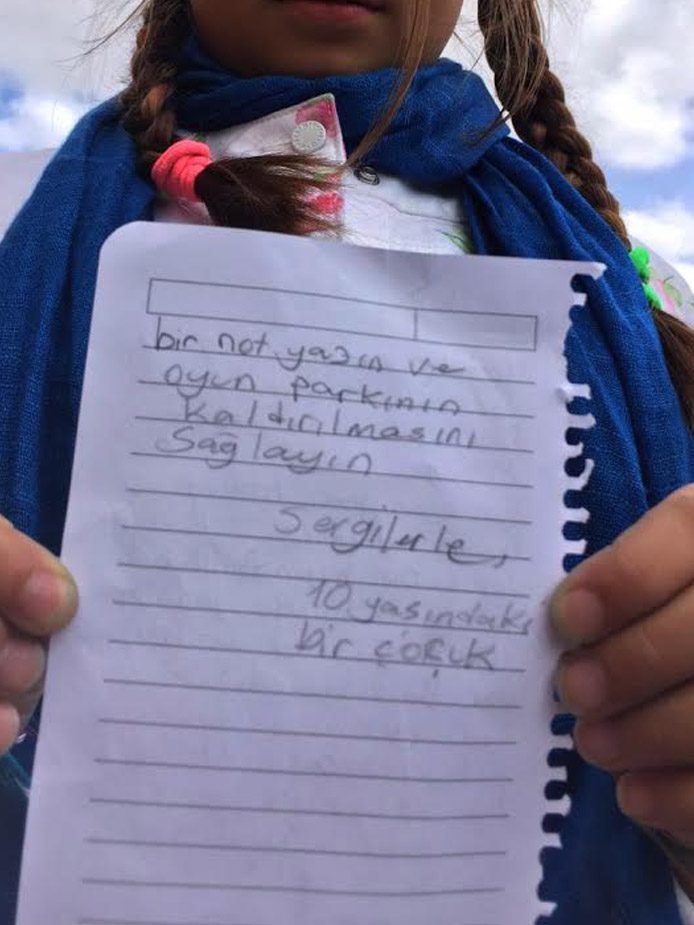 bir not yazın ve
oyun parkının
kaldırılmasını
Sağlayın
Sergilerle,
10 yaşındaki
bir çoçuk